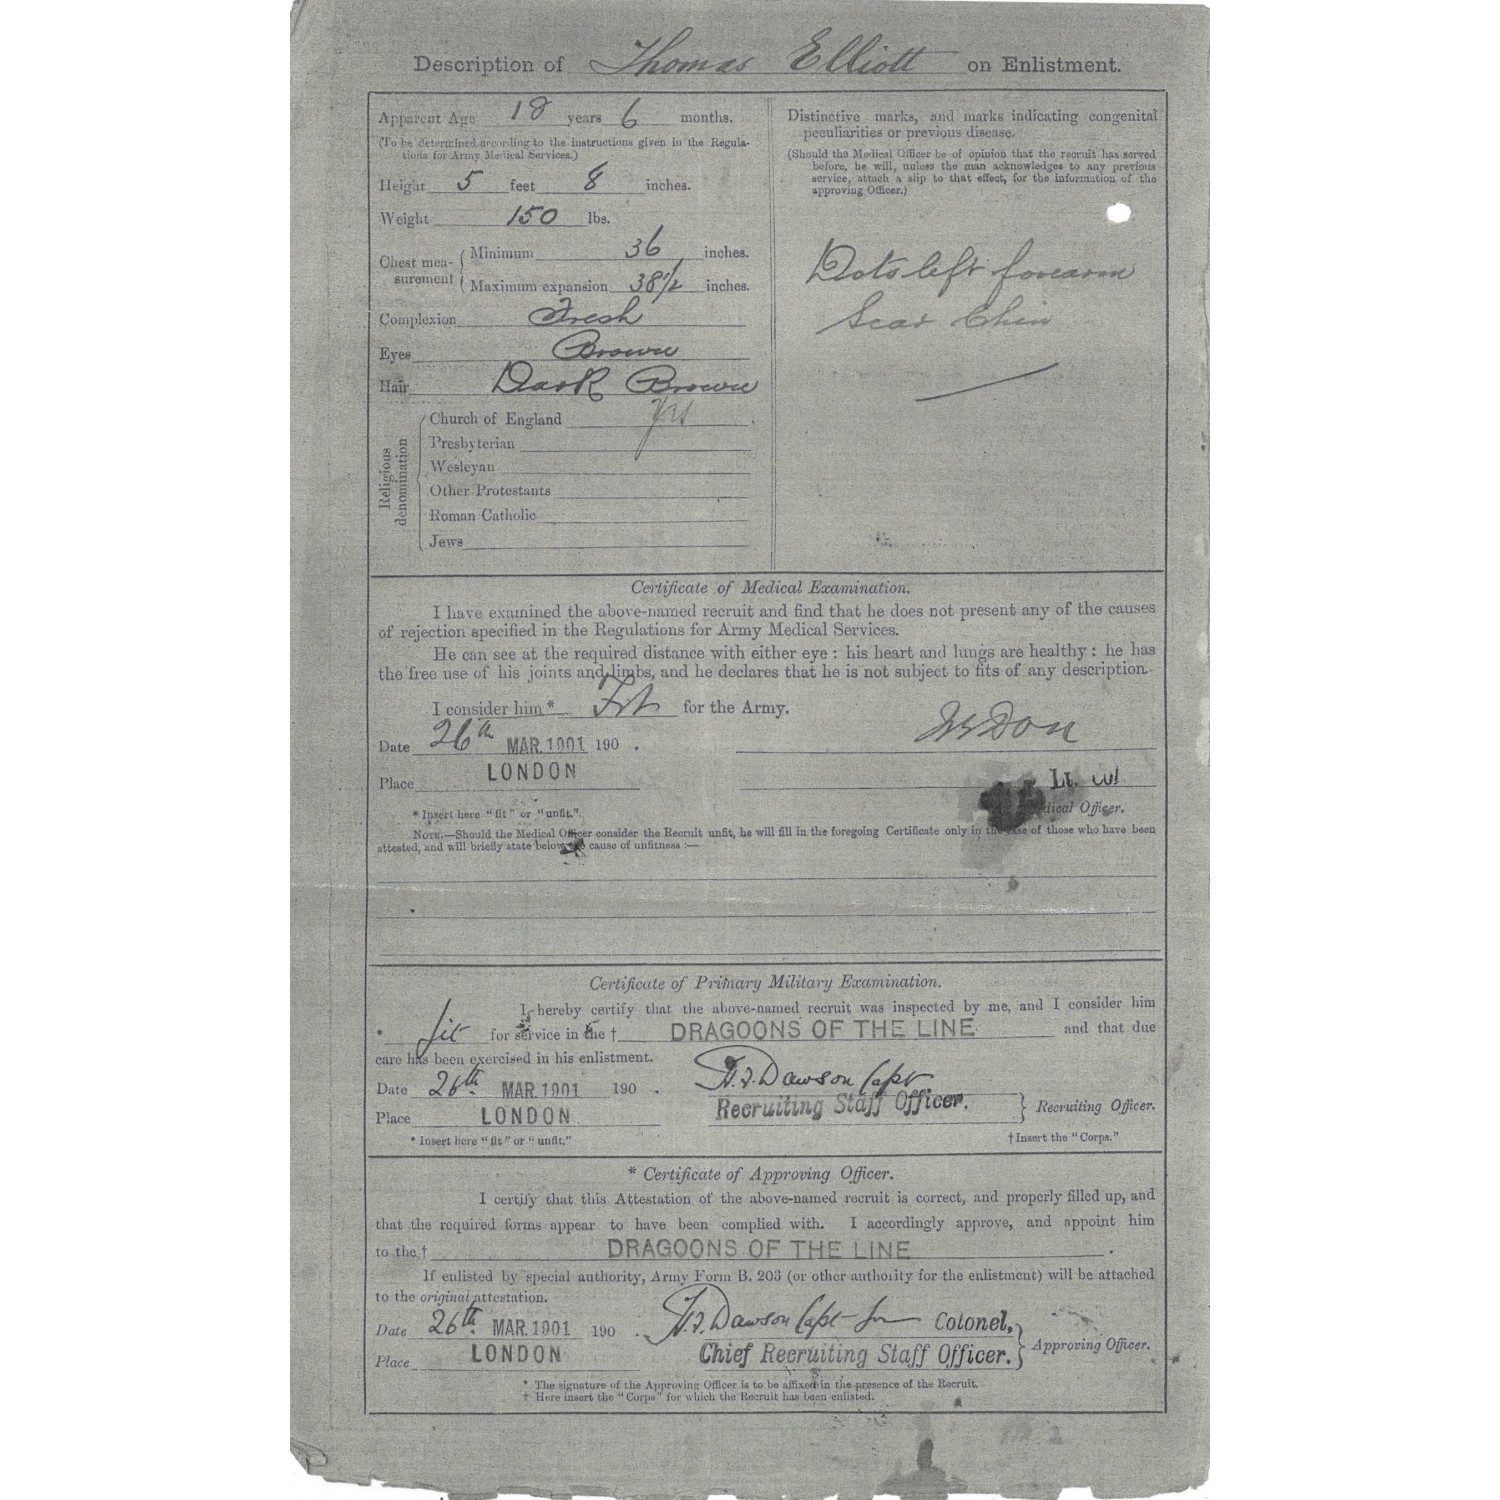 Description of Thomas Elliott on Enlistment.
Apparent Age 18 years 6 months.
(To be determined according to the instructions given in the Regula-
tions for Army Medical Services.)
Height 5 feet 8 inches.
Weight 150 lbs.
Chest mea-
surement
Minimum 36 inches.
Maximum expansion 38½ inches.
Complexion Fresh
Eyes Brown
Hair Dark Brown
Religious
denomination
Church of England Yes
Presbyterian
Wesleyan
Other Protestants
Roman Catholic
Jews
Distinctive marks, and marks indicating congenital
peculiarities or previous disease.
(Should the Medical Officer be of opinion that the recruit has served
before, he will, unless the man acknowledges to any previous
service, attach a slip to that effect, for the information of the
approving Officer.)
Dots left forearm
Scar Chin
Certificate of Medical Examination.
I have examined the above-named recruit and find that he does not present any of the causes
of rejection specified in the Regulations for Army Medical Services.
He can see at the required distance with either eye : his heart and lungs are healthy : he has
the free use of his joints and limbs, and he declares that he is not subject to fits of any description.
I consider him * Fit for the Army.
Date 26th MAR. 1901 190 .
Place LONDON
Don
Lt. Col
Medical Officer.
* Insert here "fit" or "unfit."
NOTE.—Should the Medical Officer consider the Recruit unfit, he will fill in the foregoing Certificate only in the case of those who have been
attested, and will briefly state below the cause of unfitness :—
Certificate of Primary Military Examination.
I hereby certify that the above-named recruit was inspected by me, and I consider him
* fit for service in the † DRAGOONS OF THE LINE and that due
care has been exercised in his enlistment.
Date 26th MAR. 1901 190 .
Place LONDON
Dawson Capt
Recruiting Staff Officer. } Recruiting Officer.
* Insert here "fit" or "unfit."
† Insert the "Corps."
* Certificate of Approving Officer.
I certify that this Attestation of the above-named recruit is correct, and properly filled up, and
that the required forms appear to have been complied with. I accordingly approve, and appoint him
to the † DRAGOONS OF THE LINE .
If enlisted by special authority, Army Form B. 203 (or other authority for the enlistment) will be attached
to the original attestation.
Date 26th MAR. 1901 190 .
Place LONDON
Dawson Capt for Colonel,
Chief Recruiting Staff Officer. } Approving Officer.
* The signature of the Approving Officer is to be affixed in the presence of the Recruit.
† Here insert the "Corps" for which the Recruit has been enlisted.